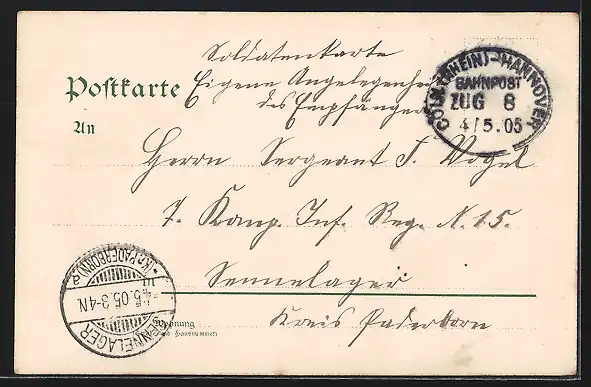 Soldatenkarte
Postkarte
Eigene Angelegenheit
des Empfängers
CÖLN (RHEIN)-HANNOVER
BAHNPOST
ZUG 8
4/5.05
An
Herrn Sergeant J. Vogel
7. Komp. Inf. Reg. N. 15.
Sennelager
Kreis Paderborn
SENNELAGER
* (Kr. PADERBORN) a
4.5.05. 3-4N.
Wohnung